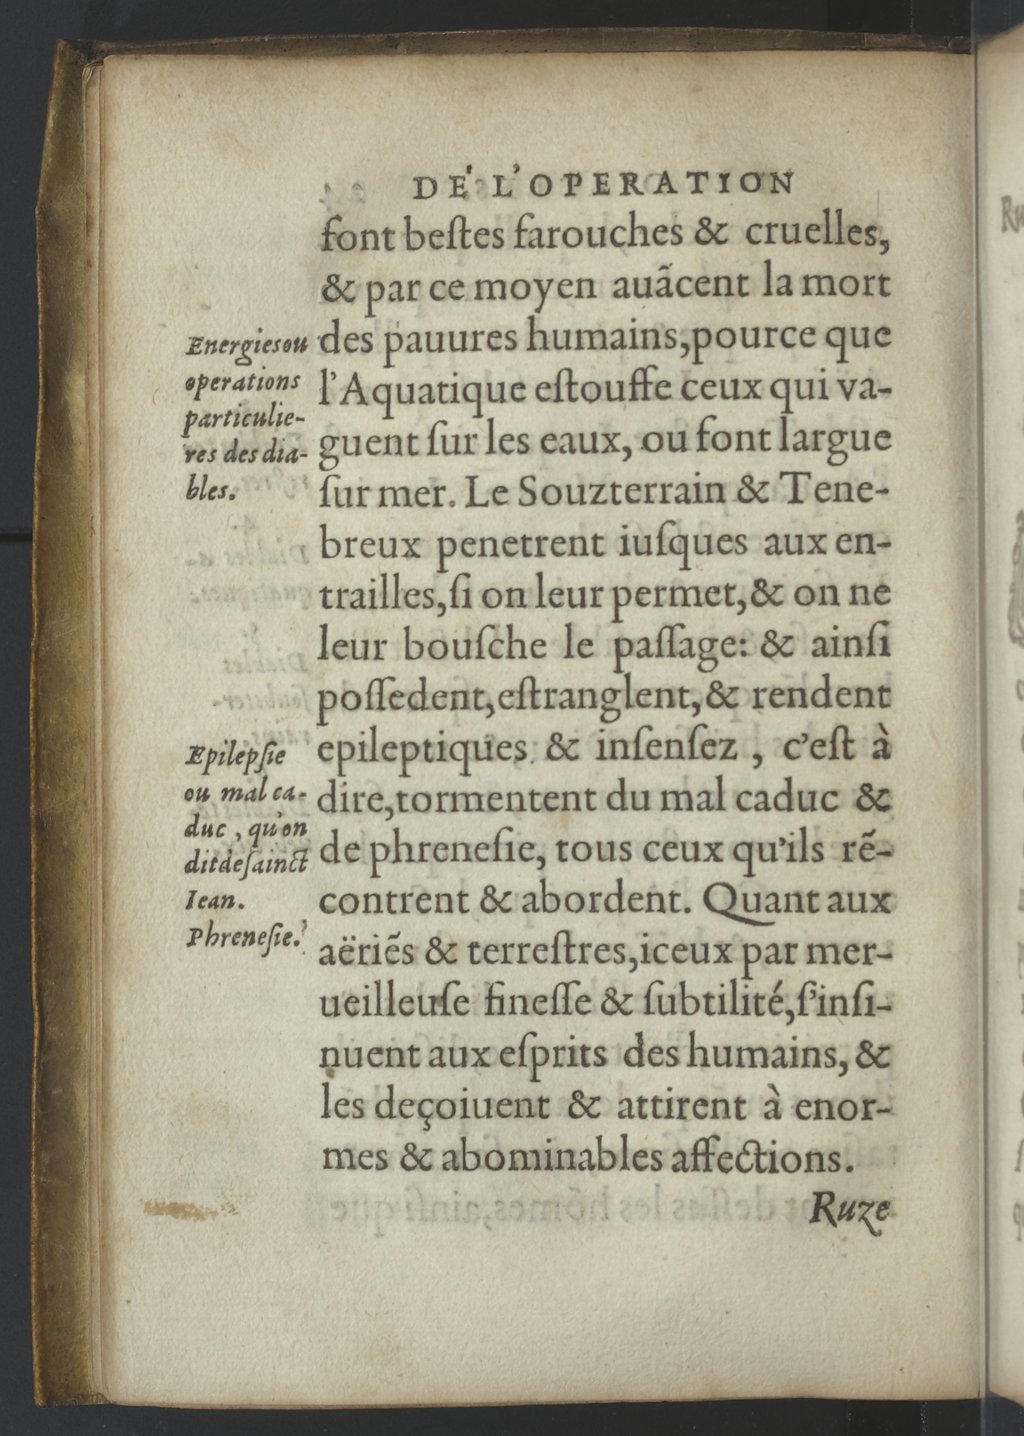 DE L'OPERATION
font beſtes farouches & cruelles,
& par ce moyen auãcent la mort
des pauures humains, pource que
l'Aquatique eſtouffe ceux qui va-
guent ſur les eaux, ou font largue
ſur mer. Le Souzterrain & Tene-
breux penetrent iuſques aux en-
trailles, ſi on leur permet, & on ne
leur bouſche le paſſage: & ainſi
poſſedent, eſtranglent, & rendent
epileptiques & inſenſez, c'eſt à
dire, tormentent du mal caduc &
de phreneſie, tous ceux qu'ils rẽ-
contrent & abordent. Quant aux
aëriẽs & terreſtres, iceux par mer-
ueilleuſe fineſſe & ſubtilité, ſ'inſi-
nuent aux eſprits des humains, &
les deçoiuent & attirent à enor-
mes & abominables affections.
Ruze
Energies ou
operations
particulie-
res des dia-
bles.
Epilepſie
ou mal ca-
duc, qu'on
dit de ſainct
Iean.
Phreneſie.